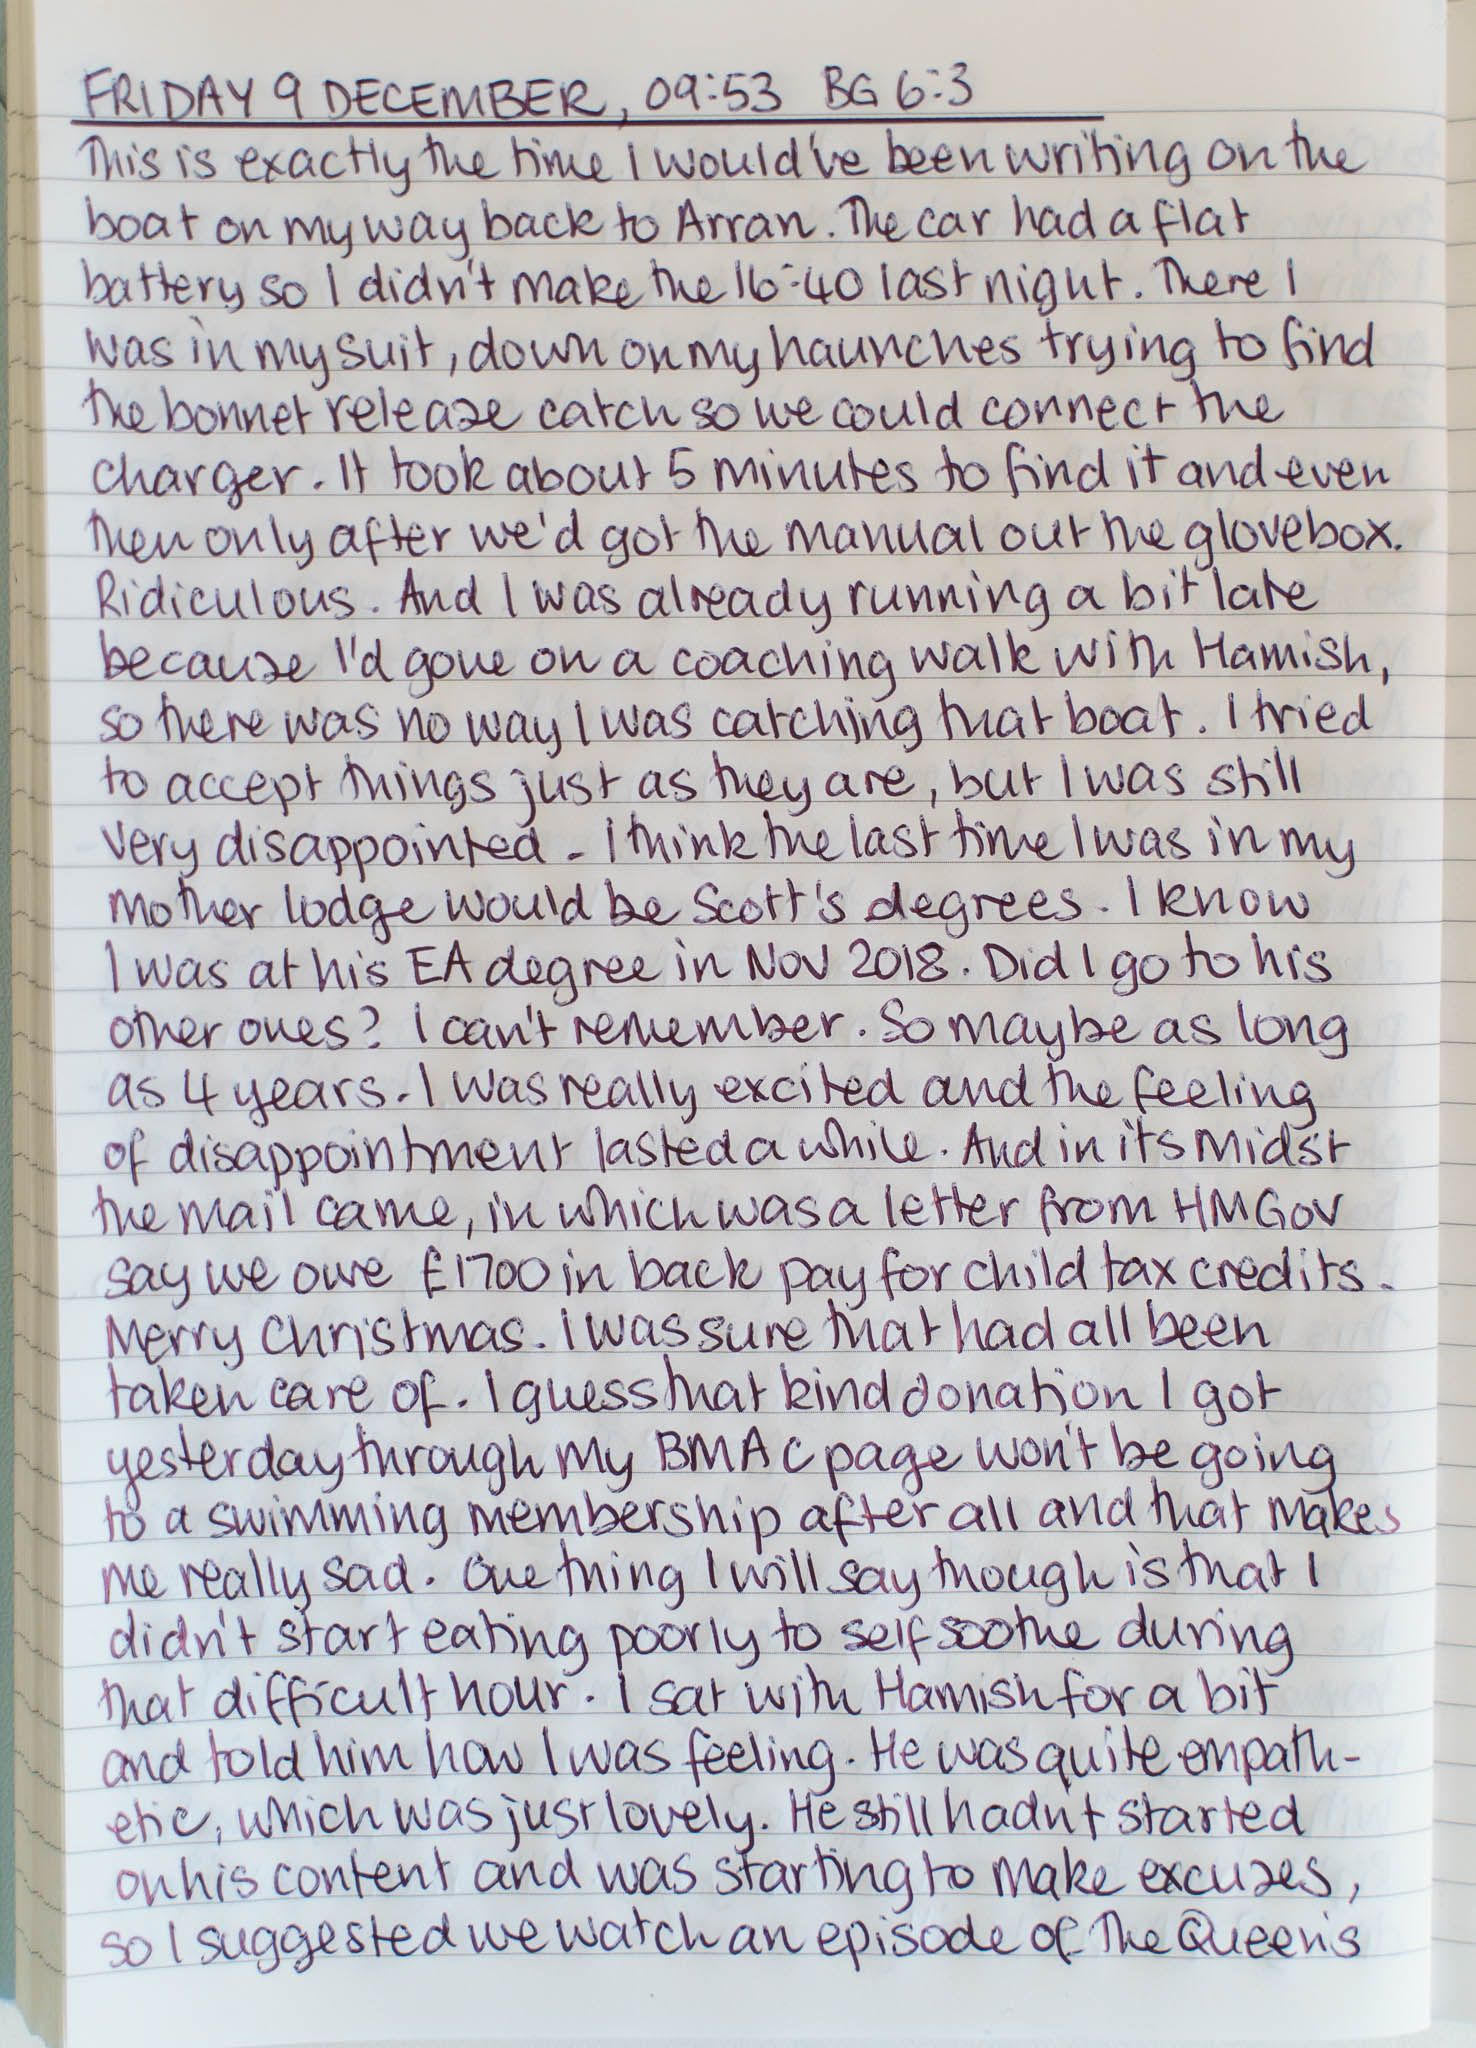 FRIDAY 9 DECEMBER, 09:53 BG 6:3
This is exactly the time I would've been writing on the
boat on my way back to Arran. The car had a flat
battery so I didn't make the 16:40 last night. There I
was in my suit, down on my haunches trying to find
the bonnet release catch so we could connect the
charger. It took about 5 minutes to find it and even
then only after we'd got the manual out the glovebox.
Ridiculous. And I was already running a bit late
because I'd gone on a coaching walk with Hamish,
so there was no way I was catching that boat. I tried
to accept things just as they are, but I was still
very disappointed. I think the last time I was in my
mother lodge would be Scott's degrees. I know
I was at his EA degree in Nov 2018. Did I go to his
other ones? I can't remember. So maybe as long
as 4 years. I was really excited and the feeling
of disappointment lasted a while. And in its midst
the mail came, in which was a letter from HM Gov
say we owe £1700 in back pay for child tax credits.
Merry Christmas. I was sure that had all been
taken care of. I guess that kind donation I got
yesterday through my BMAC page won't be going
to a swimming membership after all and that makes
me really sad. One thing I will say though is that I
didn't start eating poorly to self soothe during
that difficult hour. I sat with Hamish for a bit
and told him how I was feeling. He was quite empath-
etic, which was just lovely. He still hadn't started
on his content and was starting to make excuses,
so I suggested we watch an episode of The Queen's